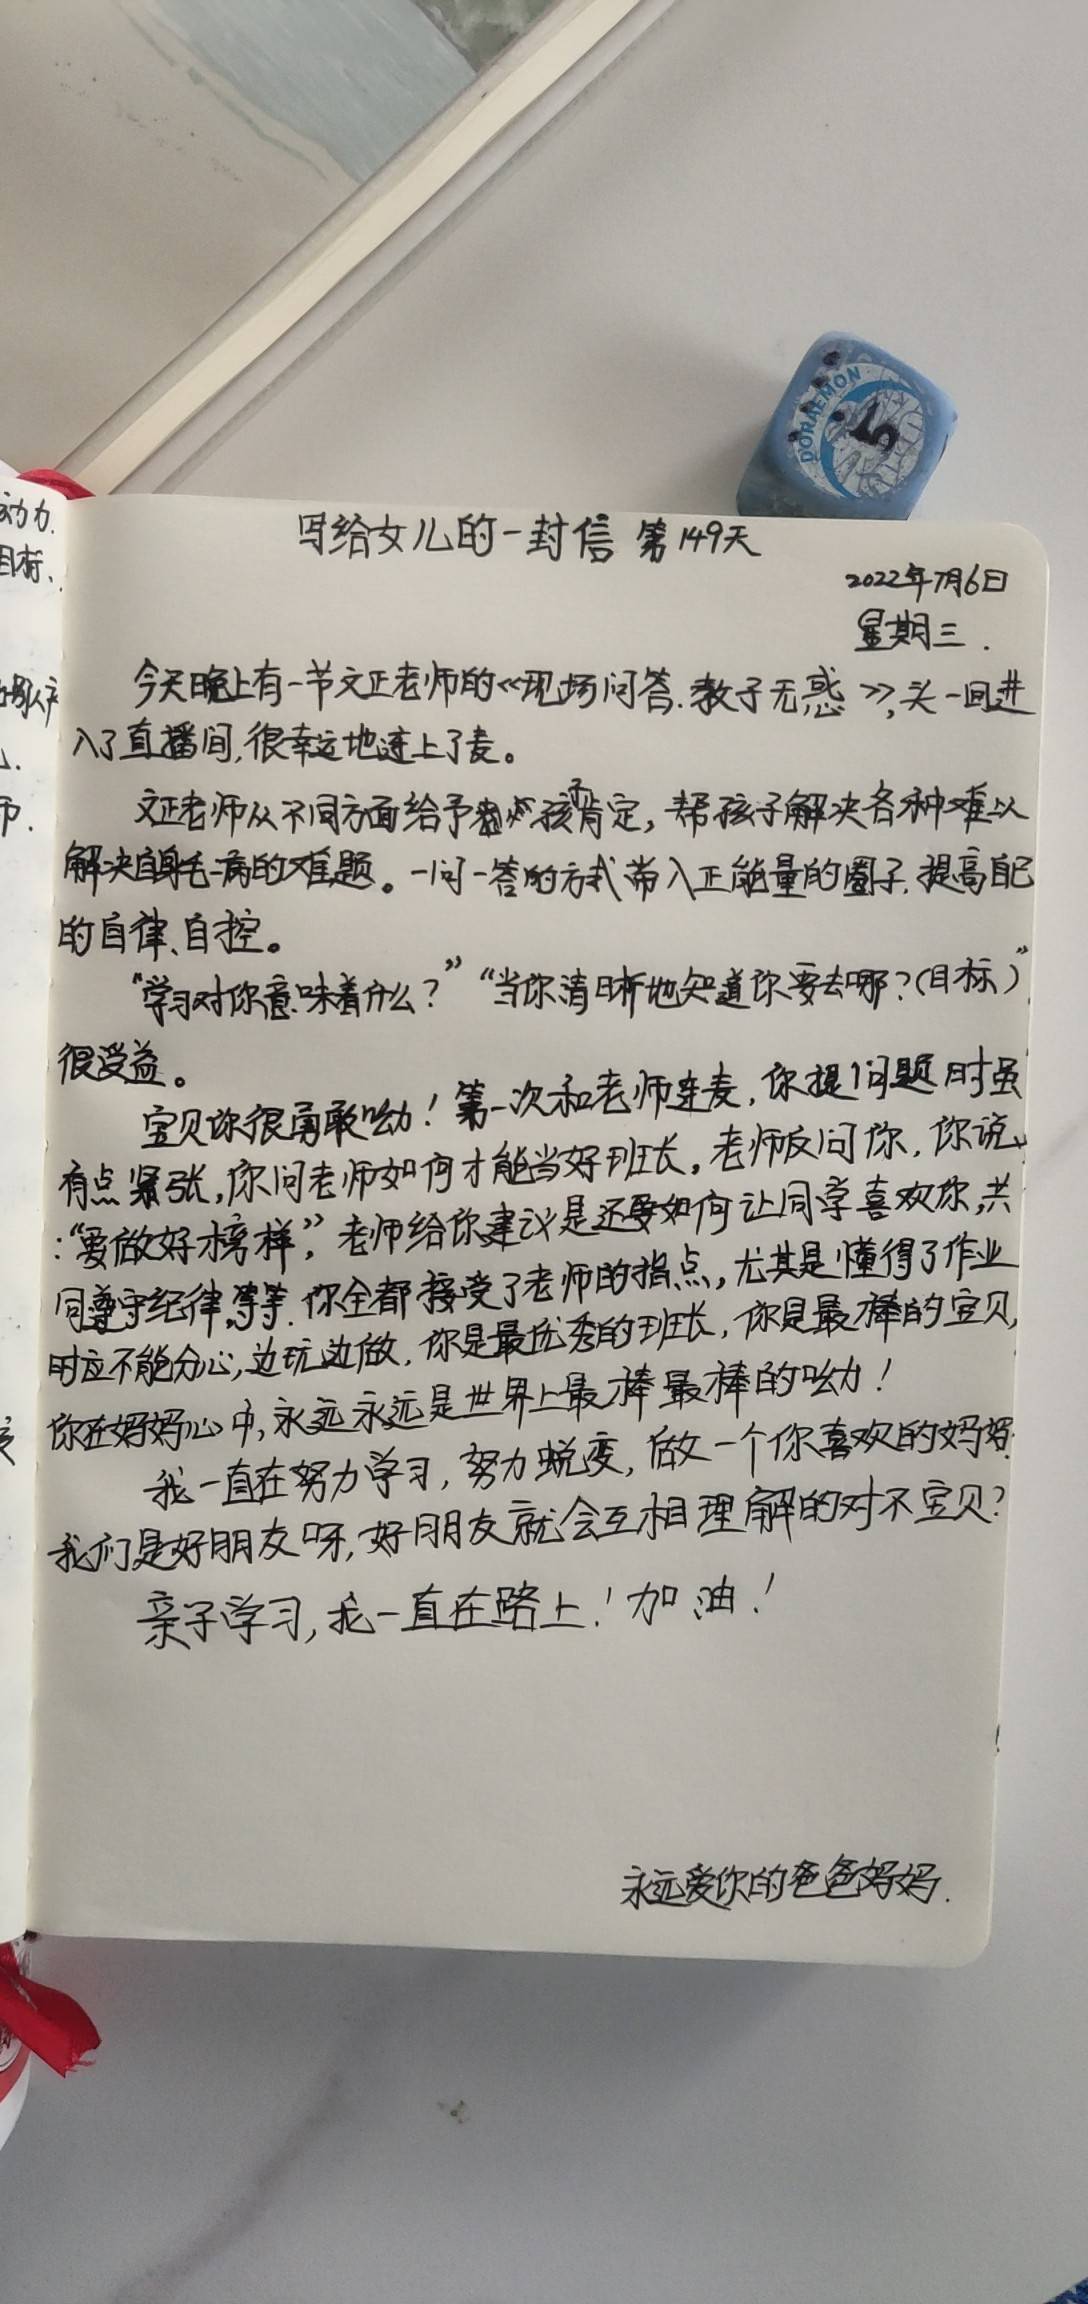 DORAEMON
5
动力.
目标.
师.
写给女儿的一封信 第149天
2022年7月6日
星期三.
今天晚上有一节文正老师的《现场问答.教子无惑》,头一回进
入了直播间,很幸运地连上了麦。
文正老师从不同方面给予孩子肯定,帮孩子解决各种难以
解决自身毛病的难题。一问一答的方式带入正能量的圈子,提高自己
的自律、自控。
“学习对你意味着什么?”“当你清晰地知道你要去哪?(目标)”
很受益。
宝贝你很勇敢呦!第一次和老师连麦,你提问题时虽
有点紧张,你问老师如何才能当好班长。老师反问你,你说
:“要做好榜样”,老师给你建议是还要如何让同学喜欢你,共
同遵守纪律,等等.你全都接受了老师的指点,尤其是懂得了作业
时应不能分心,边玩边做,你是最优秀的班长,你是最棒的宝贝,
你在妈妈心中,永远永远是世界上最棒最棒的呦!
我一直在努力学习,努力蜕变,做一个你喜欢的妈妈.
我们是好朋友呀,好朋友就会互相理解的对不宝贝?
亲子学习,我一直在路上!加油!
永远爱你的爸爸妈妈.